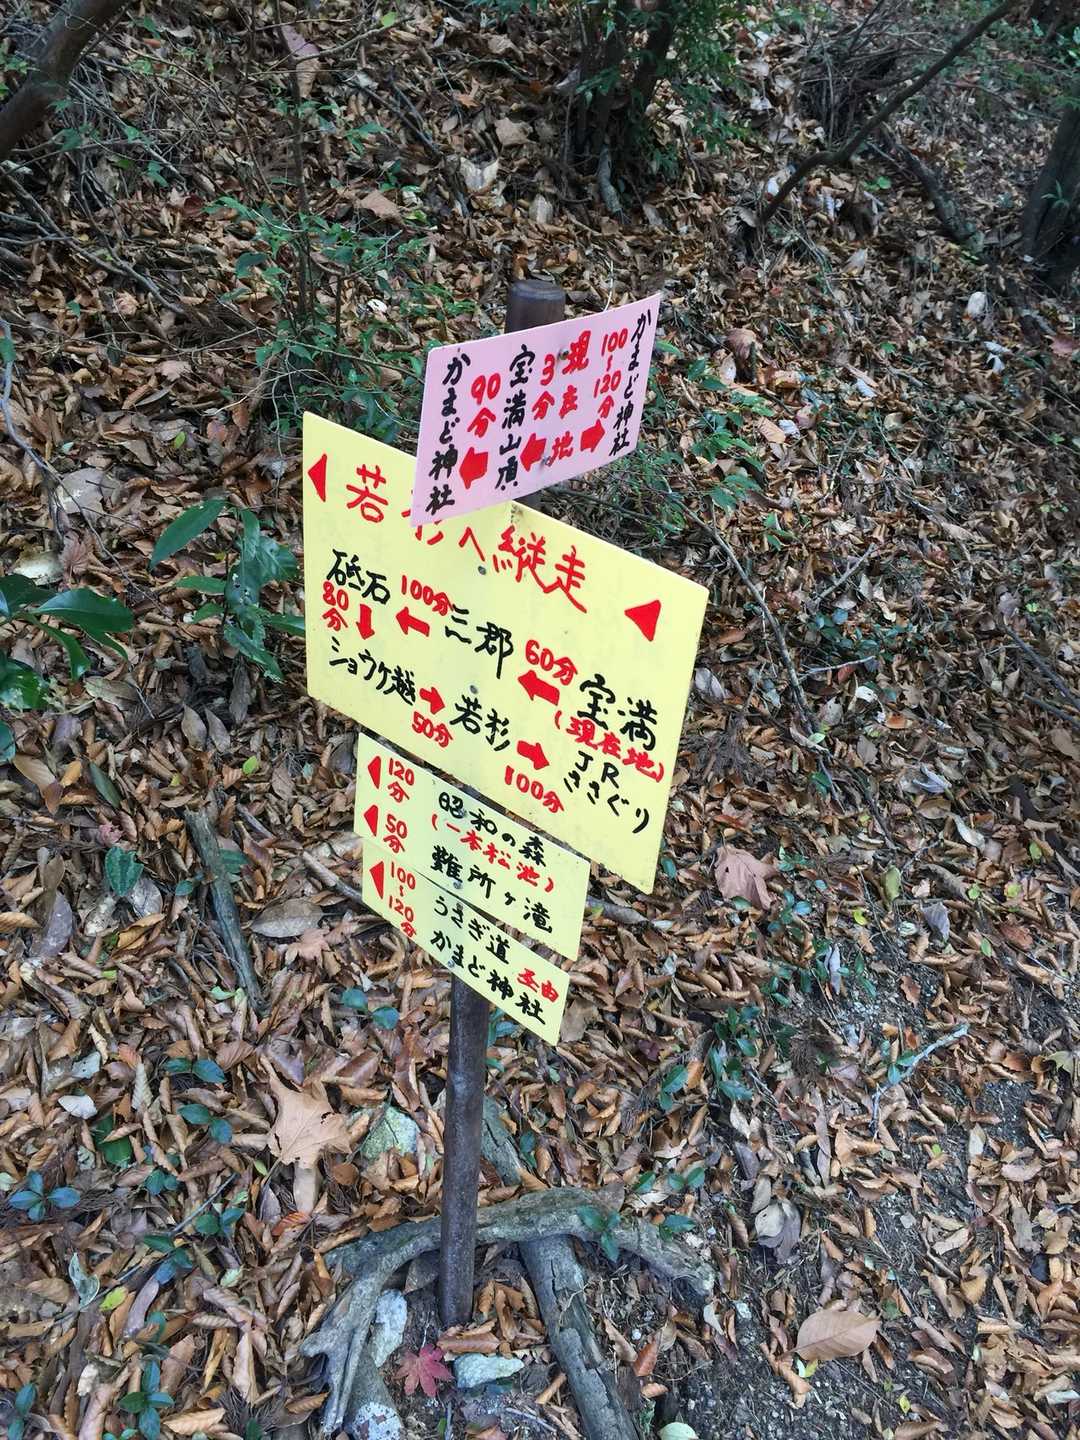 かまど神社
90分
宝満山頂
3分
現在地
100～120分
かまど神社
若杉へ縦走
砥石 100分 三郡 60分 宝満
80分 (現在地)
ショウケ越 50分 若杉 100分 JRささぐり
120分 昭和の森
(一本松池)
50分 難所ヶ滝
100～120分 うさぎ道
かまど神社 至由